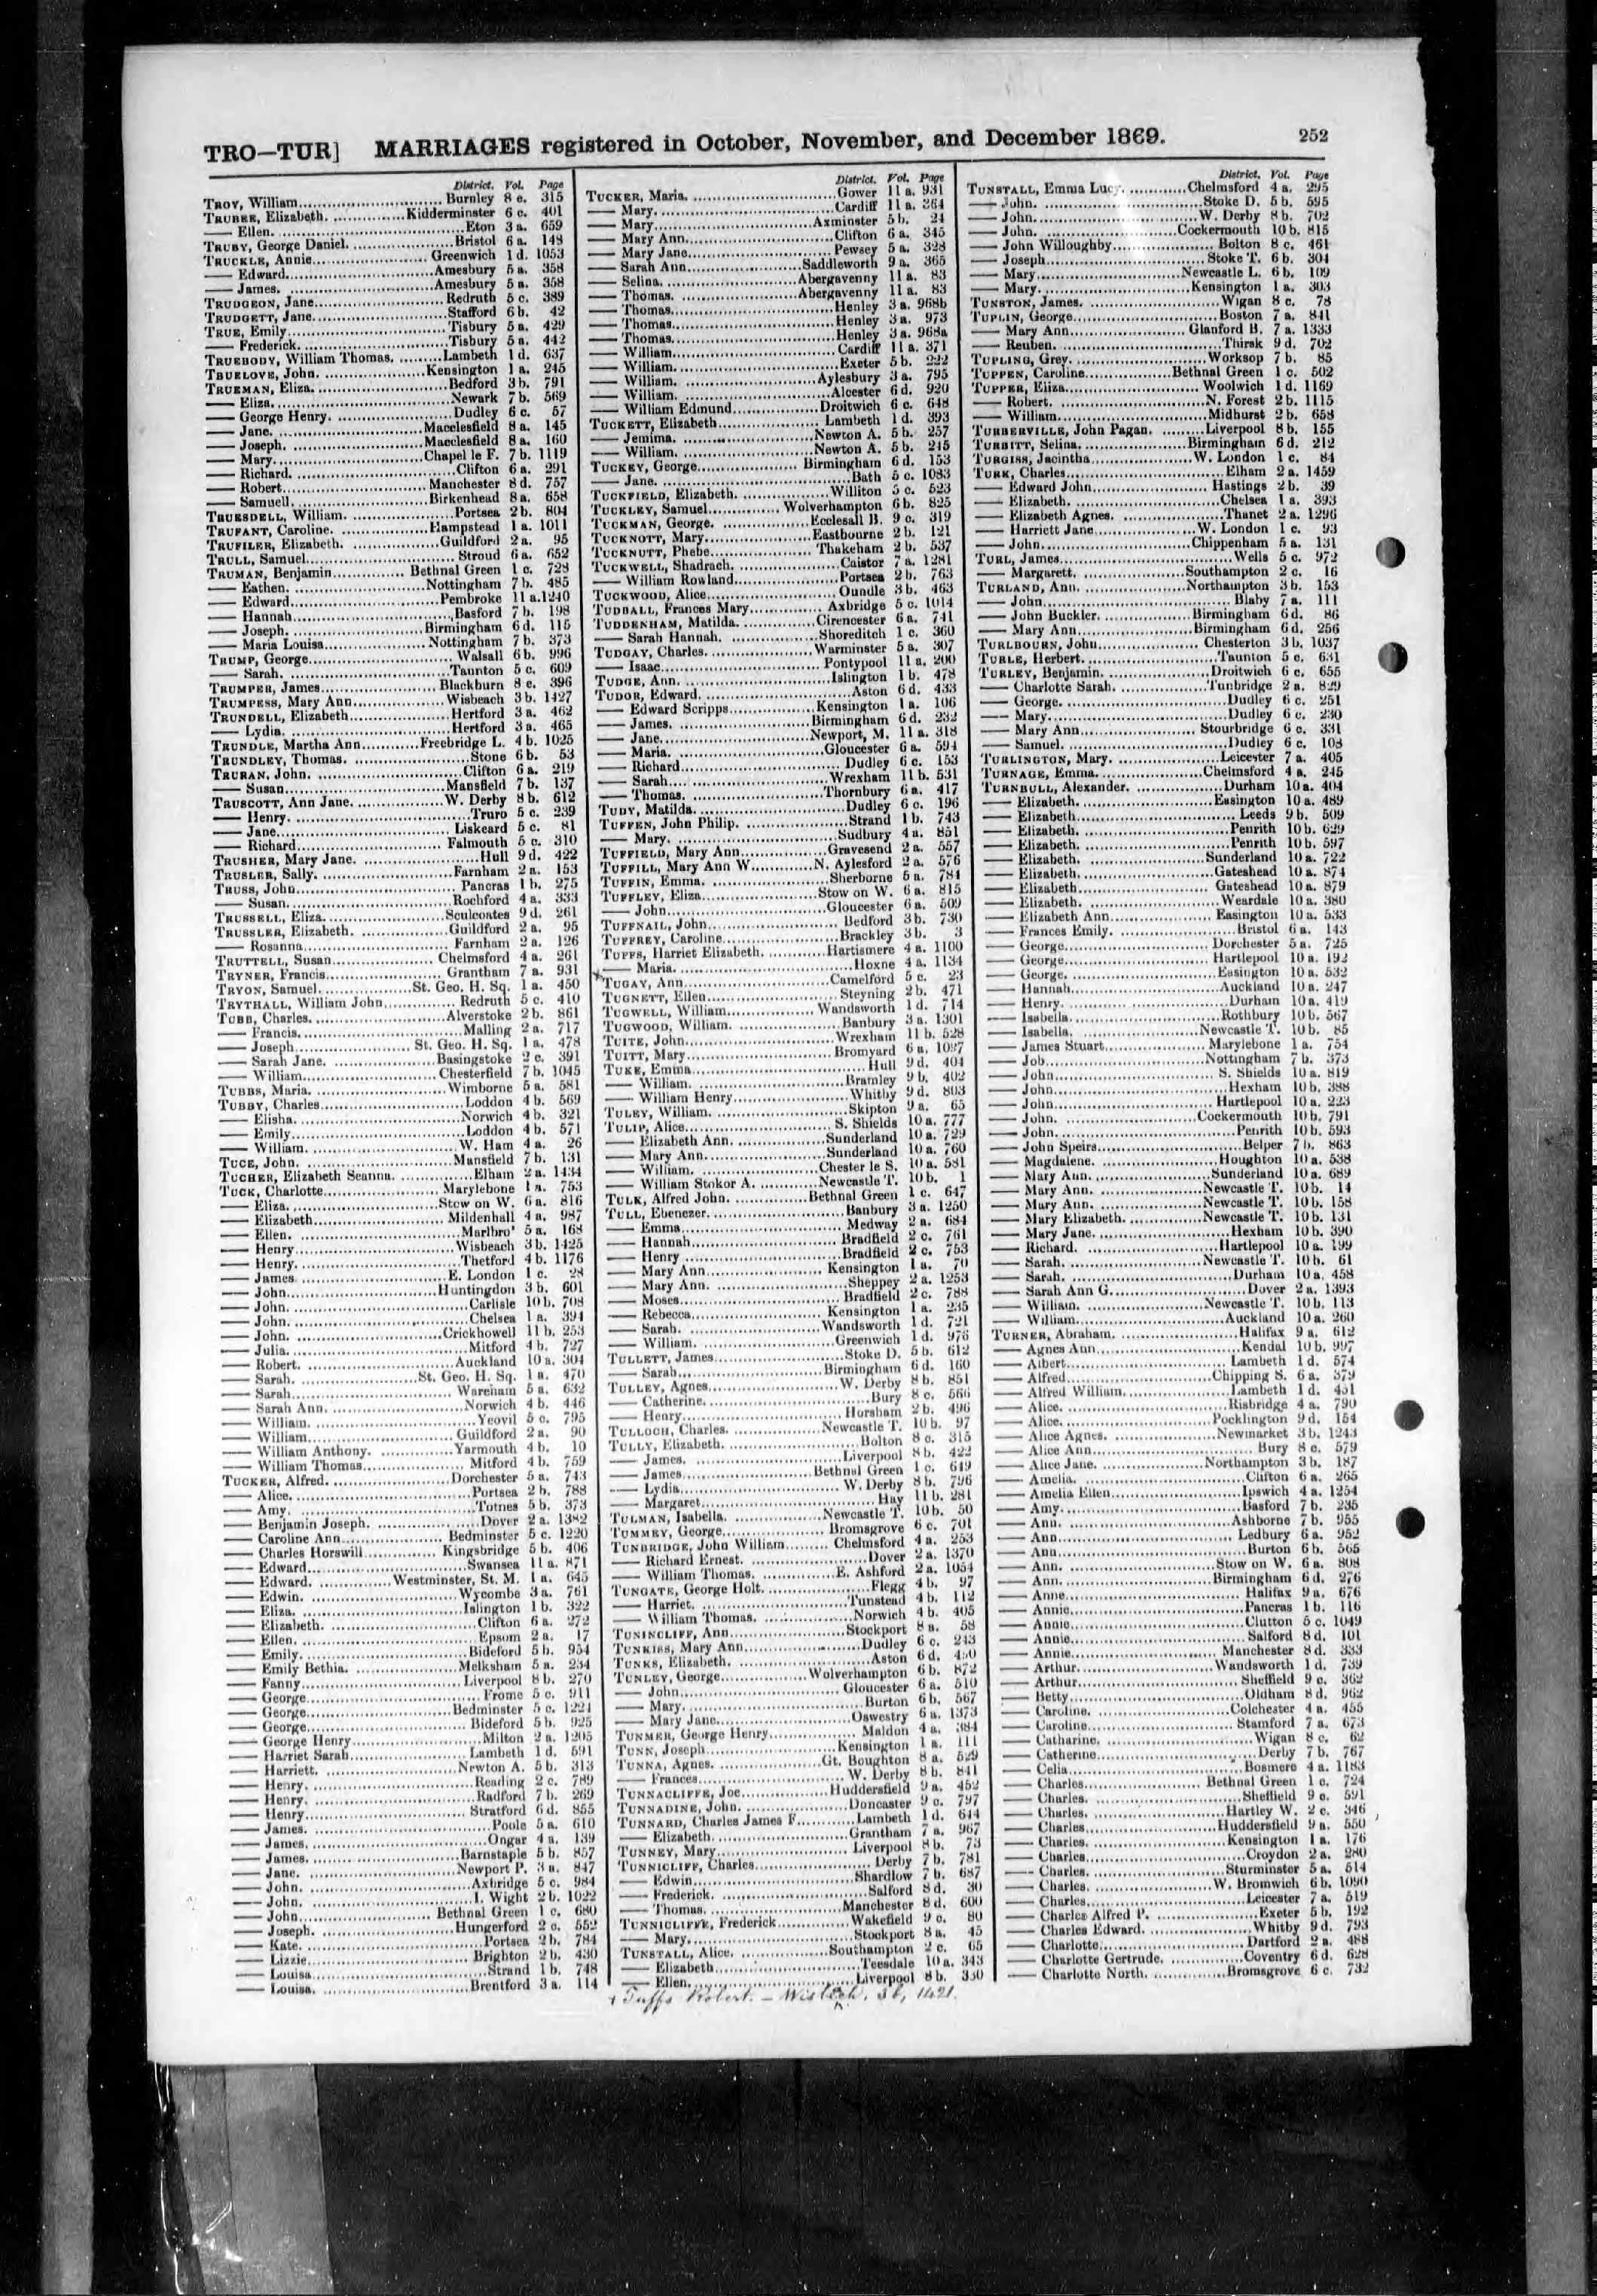 TRO—TUR] MARRIAGES registered in October, November, and December 1869. 252
District. Vol. Page
TROY, William. Burnley 8 e. 315
TRUBEE, Elizabeth. Kidderminster 6 c. 401
—— Ellen. Eton 3 a. 659
TRUBY, George Daniel. Bristol 6 a. 148
TRUCKLE, Annie. Greenwich 1 d. 1053
—— Edward. Amesbury 5 a. 358
—— James. Amesbury 5 a. 358
TRUDGEON, Jane. Redruth 5 c. 389
TRUDGETT, Jane. Stafford 6 b. 42
TRUE, Emily. Tisbury 5 a. 429
—— Frederick. Tisbury 5 a. 442
TRUEBODY, William Thomas. Lambeth 1 d. 637
TRUELOVE, John. Kensington 1 a. 245
TRUEMAN, Eliza. Bedford 3 b. 791
—— Eliza. Newark 7 b. 569
—— George Henry. Dudley 6 c. 57
—— Jane. Macclesfield 8 a. 145
—— Joseph. Macclesfield 8 a. 160
—— Mary. Chapel le F. 7 b. 1119
—— Richard. Clifton 6 a. 291
—— Robert. Manchester 8 d. 757
—— Samuell. Birkenhead 8 a. 658
TRUESDELL, William. Portsea 2 b. 804
TRUFANT, Caroline. Hampstead 1 a. 1011
TRUFILER, Elizabeth. Guildford 2 a. 95
TRULL, Samuel. Stroud 6 a. 652
TRUMAN, Benjamin. Bethnal Green 1 c. 728
—— Eathen. Nottingham 7 b. 485
—— Edward. Pembroke 11 a. 1240
—— Hannah. Basford 7 b. 198
—— Joseph. Birmingham 6 d. 115
—— Maria Louisa. Nottingham 7 b. 373
TRUMP, George. Walsall 6 b. 996
—— Sarah. Taunton 5 c. 609
TRUMPER, James. Blackburn 8 e. 396
TRUMPESS, Mary Ann. Wisbeach 3 b. 1427
TRUNDELL, Elizabeth. Hertford 3 a. 462
—— Lydia. Hertford 3 a. 465
TRUNDLE, Martha Ann. Freebridge L. 4 b. 1025
TRUNDLEY, Thomas. Stone 6 b. 53
TRURAN, John. Clifton 6 a. 219
—— Susan. Mansfield 7 b. 137
TRUSCOTT, Ann Jane. W. Derby 8 b. 612
—— Henry. Truro 5 c. 239
—— Jane. Liskeard 5 c. 81
—— Richard. Falmouth 5 c. 310
TRUSHER, Mary Jane. Hull 9 d. 422
TRUSLER, Sally. Farnham 2 a. 153
TRUSS, John. Pancras 1 b. 275
—— Susan. Rochford 4 a. 333
TRUSSELL, Eliza. Sculcoates 9 d. 261
TRUSSLER, Elizabeth. Guildford 2 a. 95
—— Rosanna. Farnham 2 a. 126
TRUTTELL, Susan. Chelmsford 4 a. 261
TRYNER, Francis. Grantham 7 a. 931
TRYON, Samuel. St. Geo. H. Sq. 1 a. 450
TRYTHALL, William John. Redruth 5 c. 410
TUBB, Charles. Alverstoke 2 b. 861
—— Francis. Malling 2 a. 717
—— Joseph. St. Geo. H. Sq. 1 a. 478
—— Sarah Jane. Basingstoke 2 c. 391
—— William. Chesterfield 7 b. 1045
TUBBS, Maria. Wimborne 5 a. 581
TUBBY, Charles. Loddon 4 b. 569
—— Elisha. Norwich 4 b. 321
—— Emily. Loddon 4 b. 571
—— William. W. Ham 4 a. 26
TUCE, John. Mansfield 7 b. 131
TUCHER, Elizabeth Seanna. Elham 2 a. 1434
TUCK, Charlotte. Marylebone 1 a. 753
—— Eliza. Stow on W. 6 a. 816
—— Elizabeth. Mildenhall 4 a. 987
—— Ellen. Marlbro' 5 a. 168
—— Henry. Wisbeach 3 b. 1425
—— Henry. Thetford 4 b. 1176
—— James. E. London 1 c. 28
—— John. Huntingdon 3 b. 601
—— John. Carlisle 10 b. 708
—— John. Chelsea 1 a. 394
—— John. Crickhowell 11 b. 253
—— Julia. Mitford 4 b. 727
—— Robert. Auckland 10 a. 304
—— Sarah. St. Geo. H. Sq. 1 a. 470
—— Sarah. Wareham 5 a. 632
—— Sarah Ann. Norwich 4 b. 446
—— William. Yeovil 5 c. 795
—— William. Guildford 2 a. 90
—— William Anthony. Yarmouth 4 b. 10
—— William Thomas. Mitford 4 b. 759
TUCKER, Alfred. Dorchester 5 a. 743
—— Alice. Portsea 2 b. 788
—— Amy. Totnes 5 b. 373
—— Benjamin Joseph. Dover 2 a. 1382
—— Caroline Ann. Bedminster 5 c. 1220
—— Charles Horswill. Kingsbridge 5 b. 406
—— Edward. Swansea 11 a. 871
—— Edward. Westminster, St. M. 1 a. 645
—— Edwin. Wycombe 3 a. 761
—— Eliza. Islington 1 b. 322
—— Elizabeth. Clifton 6 a. 272
—— Ellen. Epsom 2 a. 17
—— Emily. Bideford 5 b. 954
—— Emily Bethia. Melksham 5 a. 234
—— Fanny. Liverpool 8 b. 270
—— George. Frome 5 c. 911
—— George. Bedminster 5 c. 1221
—— George. Bideford 5 b. 925
—— George Henry. Milton 2 a. 1205
—— Harriet Sarah. Lambeth 1 d. 591
—— Harriett. Newton A. 5 b. 313
—— Henry. Reading 2 c. 789
—— Henry. Radford 7 b. 269
—— Henry. Stratford 6 d. 855
—— James. Poole 5 a. 610
—— James. Ongar 4 a. 139
—— James. Barnstaple 5 b. 857
—— Jane. Newport P. 3 a. 847
—— John. Axbridge 5 c. 984
—— John. I. Wight 2 b. 1022
—— John. Bethnal Green 1 c. 680
—— Joseph. Hungerford 2 c. 552
—— Kate. Portsea 2 b. 784
—— Lizzie. Brighton 2 b. 430
—— Louisa. Strand 1 b. 748
—— Louisa. Brentford 3 a. 114
District. Vol. Page
TUCKER, Maria. Gower 11 a. 931
—— Mary. Cardiff 11 a. 364
—— Mary. Axminster 5 b. 24
—— Mary Ann. Clifton 6 a. 345
—— Mary Jane. Pewsey 5 a. 328
—— Sarah Ann. Saddleworth 9 a. 365
—— Selina. Abergavenny 11 a. 83
—— Thomas. Abergavenny 11 a. 83
—— Thomas. Henley 3 a. 968b
—— Thomas. Henley 3 a. 973
—— Thomas. Henley 3 a. 968a
—— William. Cardiff 11 a. 371
—— William. Exeter 5 b. 222
—— William. Aylesbury 3 a. 795
—— William. Alcester 6 d. 920
—— William Edmund. Droitwich 6 c. 648
TUCKETT, Elizabeth. Lambeth 1 d. 393
—— Jemima. Newton A. 5 b. 257
—— William. Newton A. 5 b. 215
TUCKEY, George. Birmingham 6 d. 153
—— Jane. Bath 5 c. 1083
TUCKFIELD, Elizabeth. Williton 5 c. 523
TUCKLEY, Samuel. Wolverhampton 6 b. 825
TUCKMAN, George. Ecclesall B. 9 c. 319
TUCKNOTT, Mary. Eastbourne 2 b. 121
TUCKNUTT, Phebe. Thakeham 2 b. 537
TUCKWELL, Shadrach. Caistor 7 a. 1281
—— William Rowland. Portsea 2 b. 763
TUCKWOOD, Alice. Oundle 3 b. 463
TUDBALL, Frances Mary. Axbridge 5 c. 1014
TUDDENHAM, Matilda. Cirencester 6 a. 741
—— Sarah Hannah. Shoreditch 1 c. 360
TUDGAY, Charles. Warminster 5 a. 307
—— Isaac. Pontypool 11 a. 200
TUDGE, Ann. Islington 1 b. 478
TUDOR, Edward. Aston 6 d. 433
—— Edward Scripps. Kensington 1 a. 106
—— James. Birmingham 6 d. 232
—— Jane. Newport, M. 11 a. 318
—— Maria. Gloucester 6 a. 594
—— Richard. Dudley 6 c. 153
—— Sarah. Wrexham 11 b. 531
—— Thomas. Thornbury 6 a. 417
TUDY, Matilda. Dudley 6 c. 196
TUFFEN, John Philip. Strand 1 b. 743
—— Mary. Sudbury 4 a. 851
TUFFIELD, Mary Ann. Gravesend 2 a. 557
TUFFILL, Mary Ann W. N. Aylesford 2 a. 576
TUFFIN, Emma. Sherborne 5 a. 784
TUFFLEY, Eliza. Stow on W. 6 a. 815
—— John. Gloucester 6 a. 509
TUFFNAIL, John. Bedford 3 b. 730
TUFFREY, Caroline. Brackley 3 b. 3
TUFFS, Harriet Elizabeth. Hartismere 4 a. 1100
—— Maria. Hoxne 4 a. 1134
TUGAY, Ann. Camelford 5 c. 23
TUGNETT, Ellen. Steyning 2 b. 471
TUGWELL, William. Wandsworth 1 d. 714
TUGWOOD, William. Banbury 3 a. 1301
TUITE, John. Wrexham 11 b. 528
TUITT, Mary. Bromyard 6 a. 1027
TUKE, Emma. Hull 9 d. 404
—— William. Bramley 9 b. 402
—— William Henry. Whitby 9 d. 803
TULEY, William. Skipton 9 a. 65
TULIP, Alice. S. Shields 10 a. 777
—— Elizabeth Ann. Sunderland 10 a. 729
—— Mary Ann. Sunderland 10 a. 760
—— William. Chester le S. 10 a. 581
—— William Stokor A. Newcastle T. 10 b. 1
TULK, Alfred John. Bethnal Green 1 c. 647
TULL, Ebenezer. Banbury 3 a. 1250
—— Emma. Medway 2 a. 684
—— Hannah. Bradfield 2 c. 761
—— Henry. Bradfield 2 c. 753
—— Mary Ann. Kensington 1 a. 70
—— Mary Ann. Sheppey 2 a. 1253
—— Moses. Bradfield 2 c. 788
—— Rebecca. Kensington 1 a. 235
—— Sarah. Wandsworth 1 d. 721
—— William. Greenwich 1 d. 976
TULLETT, James. Stoke D. 5 b. 612
—— Sarah. Birmingham 6 d. 160
TULLEY, Agnes. W. Derby 8 b. 851
—— Catherine. Bury 8 c. 566
—— Henry. Horsham 2 b. 496
TULLOCH, Charles. Newcastle T. 10 b. 97
TULLY, Elizabeth. Bolton 8 c. 315
—— James. Liverpool 8 b. 422
—— James. Bethnal Green 1 c. 619
—— Lydia. W. Derby 8 b. 796
—— Margaret. Hay 11 b. 281
TULMAN, Isabella. Newcastle T. 10 b. 50
TUMMEY, George. Bromsgrove 6 c. 701
TUNBRIDGE, John William. Chelmsford 4 a. 253
—— Richard Ernest. Dover 2 a. 1370
—— William Thomas. E. Ashford 2 a. 1054
TUNGATE, George Holt. Flegg 4 b. 97
—— Harriet. Tunstead 4 b. 112
—— William Thomas. Norwich 4 b. 405
TUNINCLIFF, Ann. Stockport 8 a. 58
TUNKISS, Mary Ann. Dudley 6 c. 243
TUNKS, Elizabeth. Aston 6 d.
TUNLEY, George. Wolverhampton 6 b. 872
—— John. Gloucester 6 a. 510
—— Mary. Burton 6 b. 567
—— Mary Jane. Oswestry 6 a. 1373
TUNMER, George Henry. Maldon 4 a. 384
TUNN, Joseph. Kensington 1 a. 111
TUNNA, Agnes. Gt. Boughton 8 a. 529
—— Frances. W. Derby 8 b. 841
TUNNACLIFFE, Joe. Huddersfield 9 a. 452
TUNNADINE, John. Doncaster 9 c. 797
TUNNARD, Charles James F. Lambeth 1 d. 614
—— Elizabeth. Grantham 7 a. 967
TUNNEY, Mary. Liverpool 8 b. 73
TUNNICLIFF, Charles. Derby 7 b. 781
—— Edwin. Shardlow 7 b. 687
—— Frederick. Salford 8 d. 30
—— Thomas. Manchester 8 d. 600
TUNNICLIFFE, Frederick. Wakefield 9 c. 80
—— Mary. Stockport 8 a. 45
TUNSTALL, Alice. Southampton 2 c. 65
—— Elizabeth. Teesdale 10 a. 343
—— Ellen. Liverpool 8 b. 350
Tuffs Robert. – Wisbech. 3 b, 1421.
District. Vol. Page
TUNSTALL, Emma Lucy. Chelmsford 4 a. 295
—— John. Stoke D. 5 b. 595
—— John. W. Derby 8 b. 702
—— John. Cockermouth 10 b. 815
—— John Willoughby. Bolton 8 c. 461
—— Joseph. Stoke T. 6 b. 304
—— Mary. Newcastle L. 6 b. 109
—— Mary. Kensington 1 a. 303
TUNSTON, James. Wigan 8 c. 78
TUPLIN, George. Boston 7 a. 841
—— Mary Ann. Glanford B. 7 a. 1333
—— Reuben. Thirsk 9 d. 702
TUPLING, Grey. Worksop 7 b. 85
TUPPEN, Caroline. Bethnal Green 1 c. 502
TUPPER, Eliza. Woolwich 1 d. 1169
—— Robert. N. Forest 2 b. 1115
—— William. Midhurst 2 b. 658
TURBERVILLE, John Pagan. Liverpool 8 b. 155
TURBITT, Selina. Birmingham 6 d. 212
TURGISS, Jacintha. W. London 1 c. 84
TURK, Charles. Elham 2 a. 1459
—— Edward John. Hastings 2 b. 39
—— Elizabeth. Chelsea 1 a. 393
—— Elizabeth Agnes. Thanet 2 a. 1296
—— Harriett Jane. W. London 1 c. 93
—— John. Chippenham 5 a. 131
TURL, James. Wells 5 c. 972
—— Margarett. Southampton 2 c. 16
TURLAND, Ann. Northampton 3 b. 153
—— John. Blaby 7 a. 111
—— John Buckler. Birmingham 6 d. 86
—— Mary Ann. Birmingham 6 d. 256
TURLBOURN, John. Chesterton 3 b. 1037
TURLE, Herbert. Taunton 5 c. 631
TURLEY, Benjamin. Droitwich 6 c. 655
—— Charlotte Sarah. Tunbridge 2 a. 829
—— George. Dudley 6 c. 251
—— Mary. Dudley 6 c. 230
—— Mary Ann. Stourbridge 6 c. 331
—— Samuel. Dudley 6 c. 108
TURLINGTON, Mary. Leicester 7 a. 405
TURNAGE, Emma. Chelmsford 4 a. 245
TURNBULL, Alexander. Durham 10 a. 404
—— Elizabeth. Easington 10 a. 489
—— Elizabeth. Leeds 9 b. 509
—— Elizabeth. Penrith 10 b. 629
—— Elizabeth. Penrith 10 b. 597
—— Elizabeth. Sunderland 10 a. 722
—— Elizabeth. Gateshead 10 a. 874
—— Elizabeth. Gateshead 10 a. 879
—— Elizabeth. Weardale 10 a. 380
—— Elizabeth Ann. Easington 10 a. 533
—— Frances Emily. Bristol 6 a. 143
—— George. Dorchester 5 a. 725
—— George. Hartlepool 10 a. 192
—— George. Easington 10 a. 532
—— Hannah. Auckland 10 a. 247
—— Henry. Durham 10 a. 419
—— Isabella. Rothbury 10 b. 567
—— Isabella. Newcastle T. 10 b. 85
—— James Stuart. Marylebone 1 a. 754
—— Job. Nottingham 7 b. 373
—— John. S. Shields 10 a. 819
—— John. Hexham 10 b. 388
—— John. Hartlepool 10 a. 223
—— John. Cockermouth 10 b. 791
—— John. Penrith 10 b. 593
—— John Speirs. Belper 7 b. 863
—— Magdalene. Houghton 10 a. 538
—— Mary Ann. Sunderland 10 a. 689
—— Mary Ann. Newcastle T. 10 b. 14
—— Mary Ann. Newcastle T. 10 b. 158
—— Mary Elizabeth. Newcastle T. 10 b. 131
—— Mary Jane. Hexham 10 b. 390
—— Richard. Hartlepool 10 a. 199
—— Sarah. Newcastle T. 10 b. 61
—— Sarah. Durham 10 a. 458
—— Sarah Ann G. Dover 2 a. 1393
—— William. Newcastle T. 10 b. 113
—— William. Auckland 10 a. 260
TURNER, Abraham. Halifax 9 a. 612
—— Agnes Ann. Kendal 10 b. 997
—— Albert. Lambeth 1 d. 574
—— Alfred. Chipping S. 6 a. 379
—— Alfred William. Lambeth 1 d. 451
—— Alice. Risbridge 4 a. 790
—— Alice. Pocklington 9 d. 154
—— Alice Agnes. Newmarket 3 b. 1243
—— Alice Ann. Bury 8 c. 579
—— Alice Jane. Northampton 3 b. 187
—— Amelia. Clifton 6 a. 265
—— Amelia Ellen. Ipswich 4 a. 1254
—— Amy. Basford 7 b. 235
—— Ann. Ashborne 7 b. 955
—— Ann. Ledbury 6 a. 952
—— Ann. Burton 6 b. 565
—— Ann. Stow on W. 6 a. 808
—— Ann. Birmingham 6 d. 276
—— Anne. Halifax 9 a. 676
—— Annie. Pancras 1 b. 116
—— Annie. Clutton 5 c. 1049
—— Annie. Salford 8 d. 101
—— Annie. Manchester 8 d. 333
—— Arthur. Wandsworth 1 d. 739
—— Arthur. Sheffield 9 c. 362
—— Betty. Oldham 8 d. 962
—— Caroline. Colchester 4 a. 455
—— Caroline. Stamford 7 a. 673
—— Catharine. Wigan 8 c. 62
—— Catherine. Derby 7 b. 767
—— Celia. Bosmere 4 a. 1183
—— Charles. Bethnal Green 1 c. 724
—— Charles. Sheffield 9 c. 591
—— Charles. Hartley W. 2 c. 346
—— Charles. Huddersfield 9 a. 550
—— Charles. Kensington 1 a. 176
—— Charles. Croydon 2 a. 280
—— Charles. Sturminster 5 a. 514
—— Charles. W. Bromwich 6 b. 1090
—— Charles. Leicester 7 a. 519
—— Charles Alfred P. Exeter 5 b. 192
—— Charles Edward. Whitby 9 d. 793
—— Charlotte. Dartford 2 a. 488
—— Charlotte Gertrude. Coventry 6 d. 628
—— Charlotte North. Bromsgrove 6 c. 732